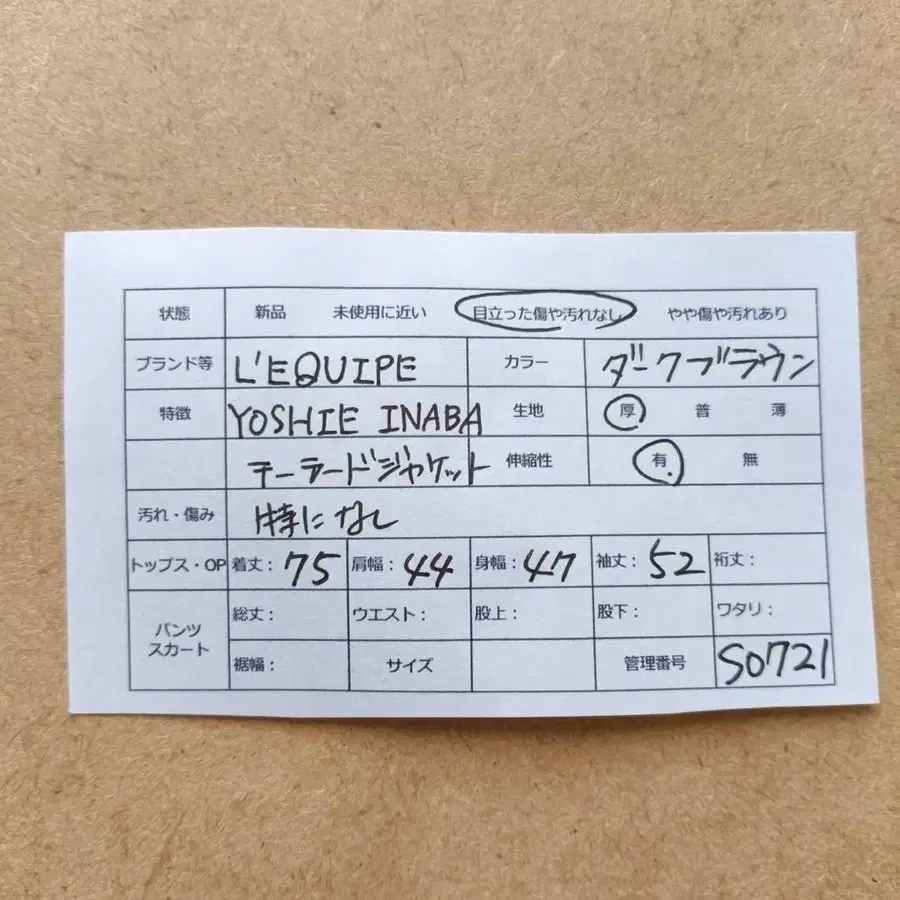 状態 新品 未使用に近い 目立った傷や汚れなし やや傷や汚れあり
ブランド等 L'EQUIPE カラー ダークブラウン
特徴 YOSHIE INABA 生地 厚 普 薄
テーラードジャケット 伸縮性 有 無
汚れ・傷み 特になし
トップス・OP 着丈：75 肩幅：44 身幅：47 袖丈：52 裄丈：
パンツ スカート 総丈： ウエスト： 股上： 股下： ワタリ：
裾幅： サイズ 管理番号 S0721